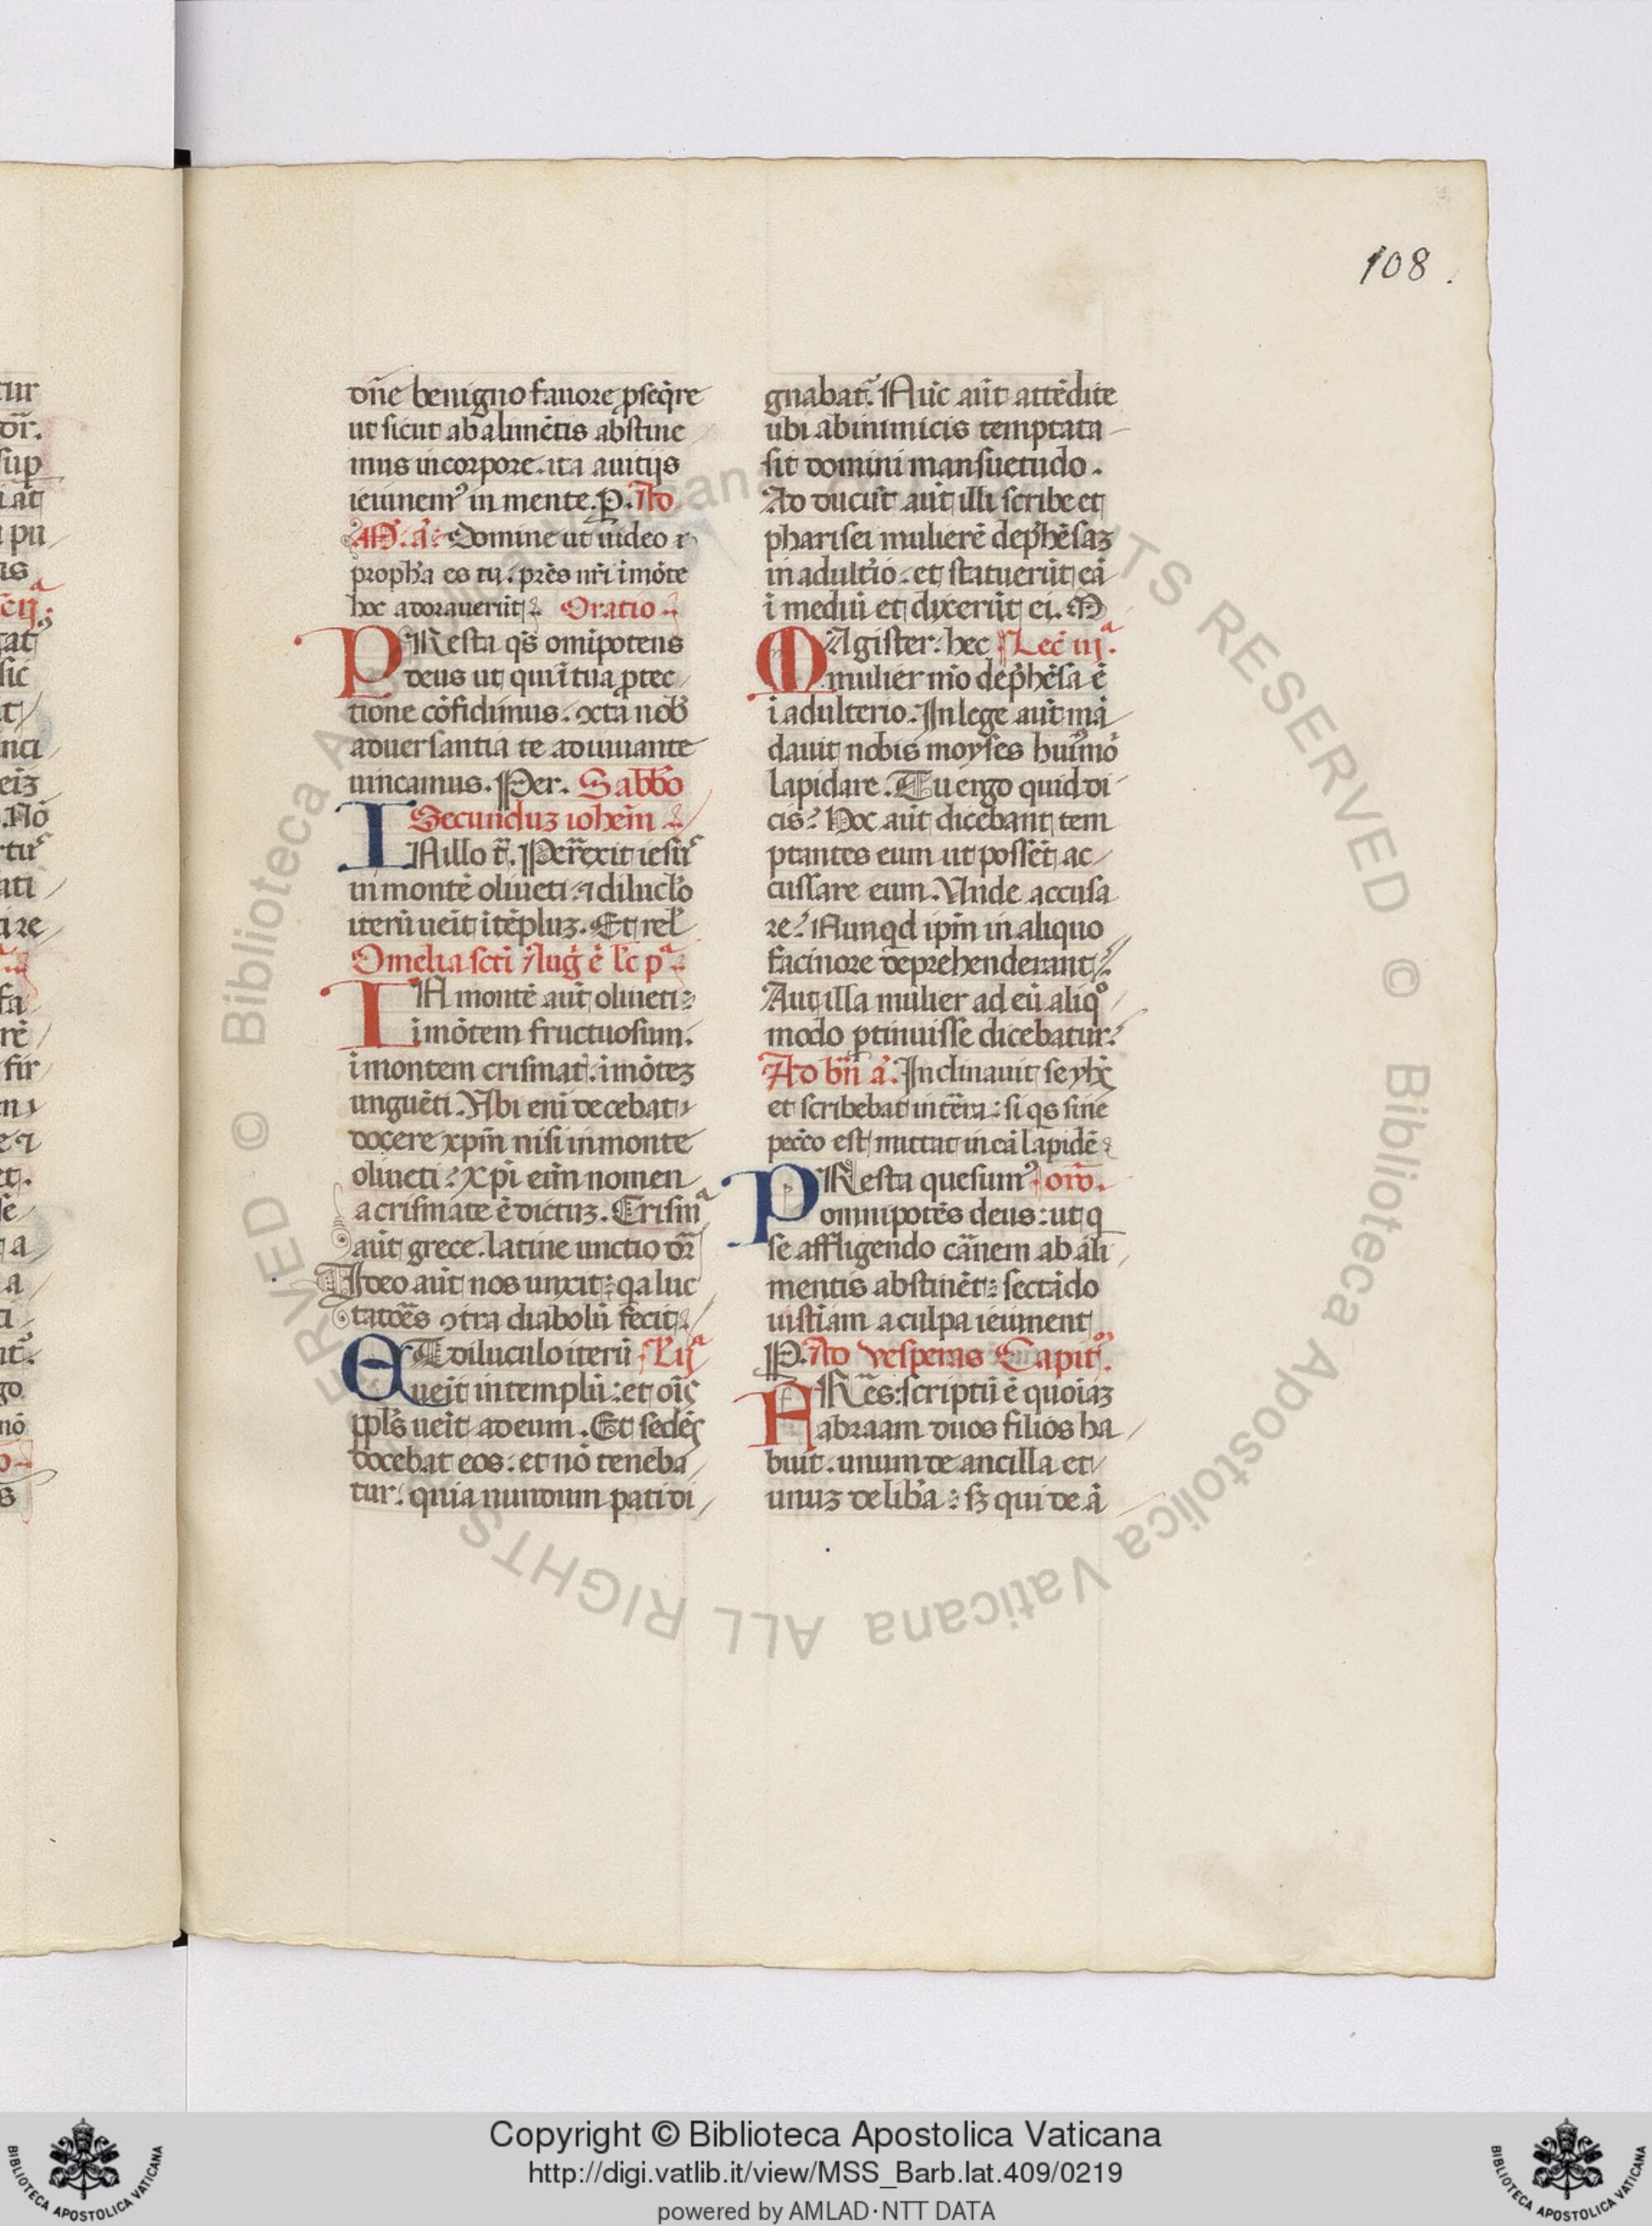 108.
dn̄e benigno fauore ꝓseq̄re
ut sicut ab alimētis abstine
mus in corpore. ita a uitijs
ieiunemꝰ in mente. P. Ad
M̄. a᷎. Domine ut uideo
propħa es tu. pr̄es nr̄i ī mōte
hoc adorauerūt. Oratio
PResta qs̄ omīpotens
deus ut qui ī tua ꝓtec
tione cōfidimus. ꝯcta nob̄
aduersantia te adiuuante
uincamus. Per. Sabb̄o
Secunduꝫ ioh̄em
IN illo t̄. Perrexit iesus
in montē oliueti. ⁊ diluclo
iterū ueīt ī tēpluꝫ. Et rel̄
Omelia sc̄i Auḡ ē l̄c pᵃ
IN montē aūt oliueti
ī mōtem fructuosum.
ī montem crismat̄. ī mōteꝫ
unguēti. Ubi enī decebat
docere xp̄m nisi in monte
oliueti? Xp̄i eīm nomen
a crismate ē dictuꝫ. Crismᵃ
aūt grece. latine unctio dr̄
Ideo aūt nos unxit: q̄a luc
tatōes ꝯtra diabolū fecit.
ET diluculo iterū L̄ ijᵃ
ueīt in templū: et oīs
ppl̄s ueīt ad eum. Et sedēs
docebat eos. et nō teneba
tur: quia nundum pati di
gnabat᷑. Nūc aūt attēdite
ubi ab inimicis temptata
sit domini mansuetudo.
Ad ducūt aūt illi scribe et
pharisei mulierē dep̄hēsaꝫ
in adult̄io. et statuerūt eā
ī mediū et dixerūt ei. M
MAgister: hec Lec̄ iijᵃ.
mulier mō dep̄hēsa ē
ī adulterio. In lege aūt mā
dauit nobis moyses huiꝰmō
lapidare. Tu ergo quid di
cis? Hoc aūt dicebant tem
ptantes eum ut possēt ac
cussare eum. Unde accusa
re? Nunqd ip̄m in aliquo
facinore deprehenderant?
Aut illa mulier ad eū aliqᵒ
modo ꝑtinuisse dicebatur?
Ad bn̄ a᷎. Inclinauit se yħc
et scribebat in t̄ra: si qs̄ sine
pec̄co est mittat in eā lapidē
PResta quesumꝰ orō.
omnipotēs deus: ut q
se affligendo car̄nem ab ali
mentis abstinēt: sectādo
iustīam a culpa ieiunent
P. Ad vesperas Capit̄ᵒ.
FRēs: scriptū ē quoīaꝫ
abraam duos filios ha
buit. unum de ancilla et
unuꝫ de lib̄a: sꝫ qui de ā
Copyright © Biblioteca Apostolica Vaticana
http://digi.vatlib.it/view/MSS_Barb.lat.409/0219
powered by AMLAD·NTT DATA
BIBLIOTECA APOSTOLICA VATICANA
BIBLIOTECA APOSTOLICA VATICANA